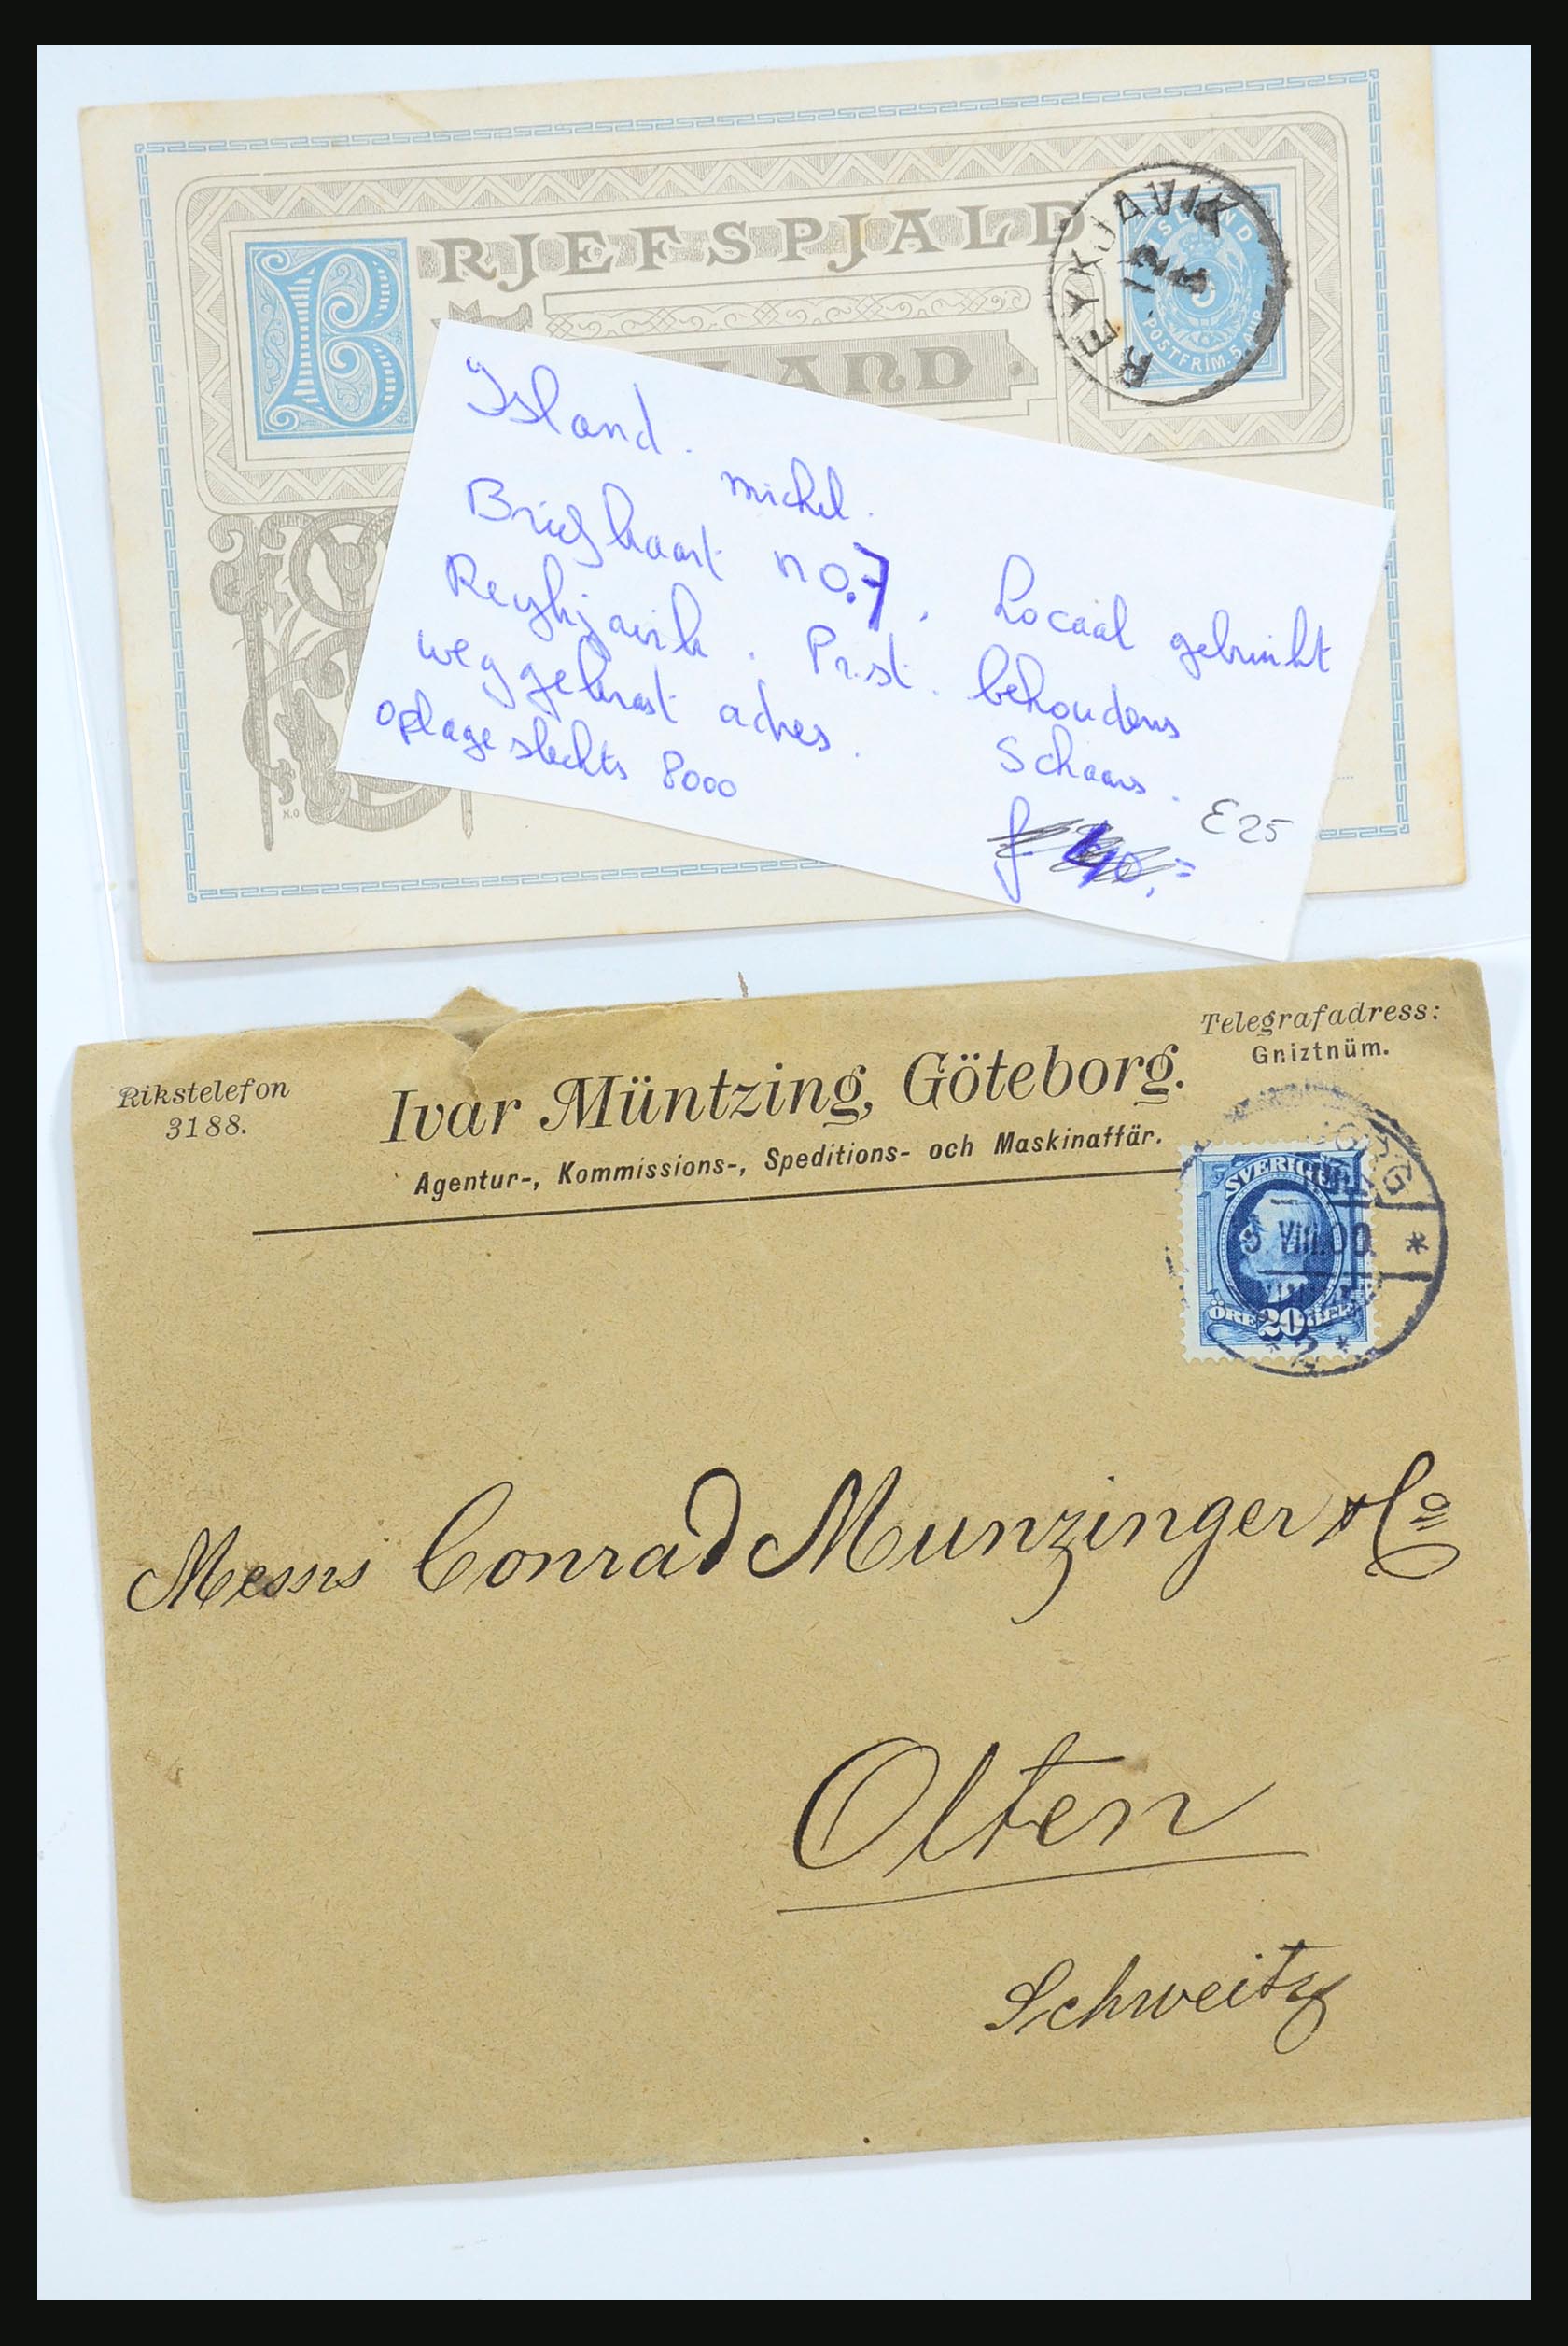 BRJEFSPJALD
REYKJAVIK
12
ISLAND
5
POSTFRIM. 5 AUR
LAND.
Island. michel.
Briefkaart no. 7. Locaal gebruikt
Reykjavik. Pr.st. behoudens
weggekrast adres. Schaars.
Oplage slechts 8000
f 40,=
£25
H.O
Telegrafadress:
Gniztnüm.
Rikstelefon
3188.
Ivar Müntzing, Göteborg.
Agentur-, Kommissions-, Speditions- och Maskinaffär.
SVERIGE
VIII.00
*
ÖRE 20 ÖRE
* 2 *
Messrs Conrad Munzinger & Co
Olten
Schweitz